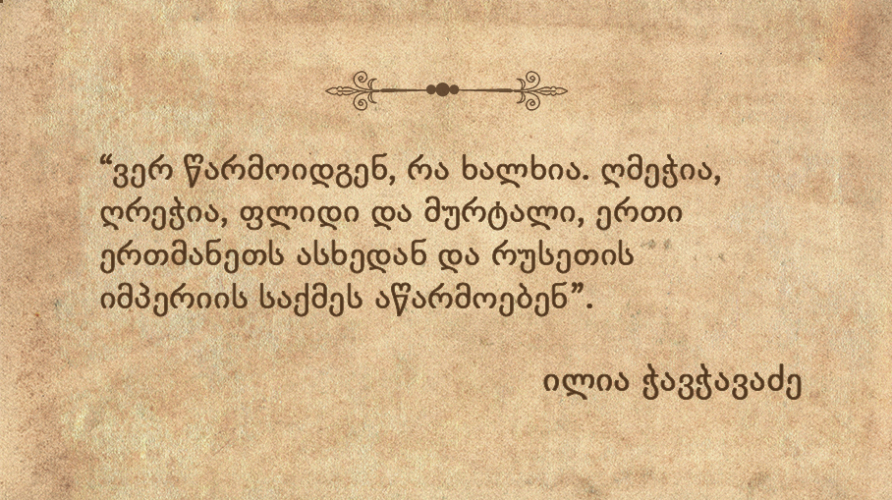 “ვერ წარმოიდგენ, რა ხალხია. ღმეჭია,
ღრეჭია, ფლიდი და მურტალი, ერთი
ერთმანეთს ასხედან და რუსეთის
იმპერიის საქმეს აწარმოებენ”.
ილია ჭავჭავაძე